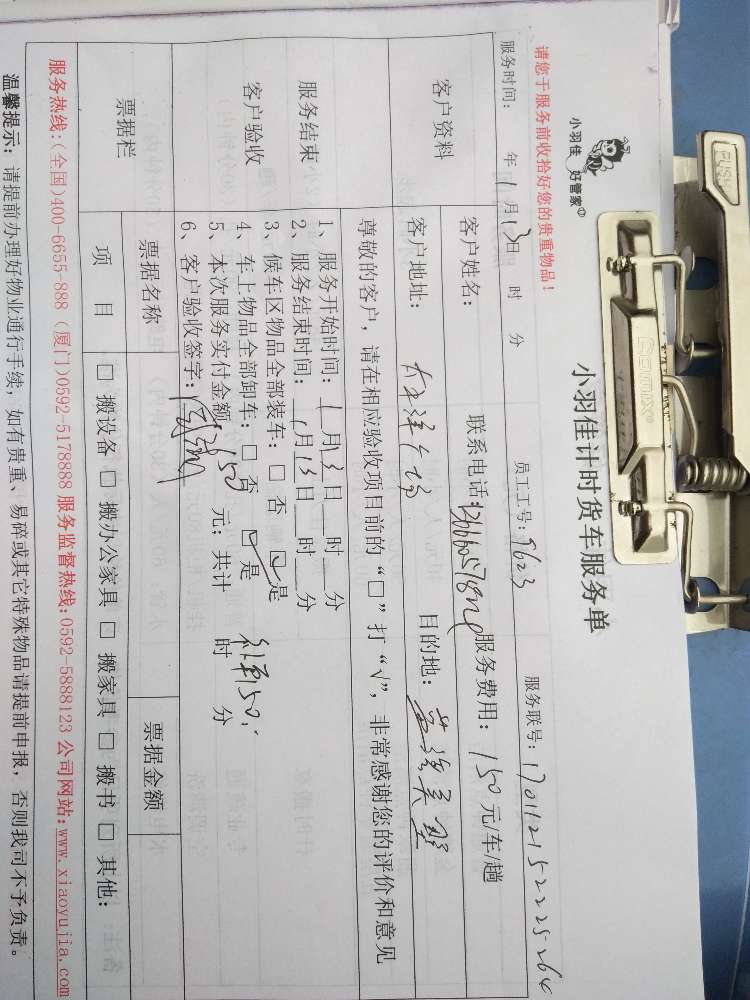 小羽佳 好管家
小羽佳计时货车服务单
请您于服务前收拾好您的贵重物品！
服务时间： 年 1 月 13 日 时 分 员工工号：9623 服务联号：170112152225264
客户资料
客户姓名： 联系电话： 服务费用：150元/车/趟
客户地址： 目的地：
尊敬的客户，请在相应验收项目前的“□”打“√”，非常感谢您的评价和意见
服务结束
客户验收
1、服务开始时间：1月13日 时 分
2、服务结束时间：1月13日 时 分
3、候车区物品全部装车：□ 否 ☑ 是
4、车上物品全部卸车：□ 否 ☑ 是
5、本次服务实付金额 150 元；共计 时 分
6、客户验收签字：
票据栏
票据名称 票据金额
项 目 □ 搬设备 □ 搬办公家具 □ 搬家具 □ 搬书 □ 其他：
服务热线:(全国)400-6655-888 (厦门)0592-5178888 服务监督热线:0592-5888123 公司网站:www.xiaoyujia.com
温馨提示：请提前办理好物业通行手续，如有贵重、易碎或其它特殊物品请提前申报，否则我司不予负责。